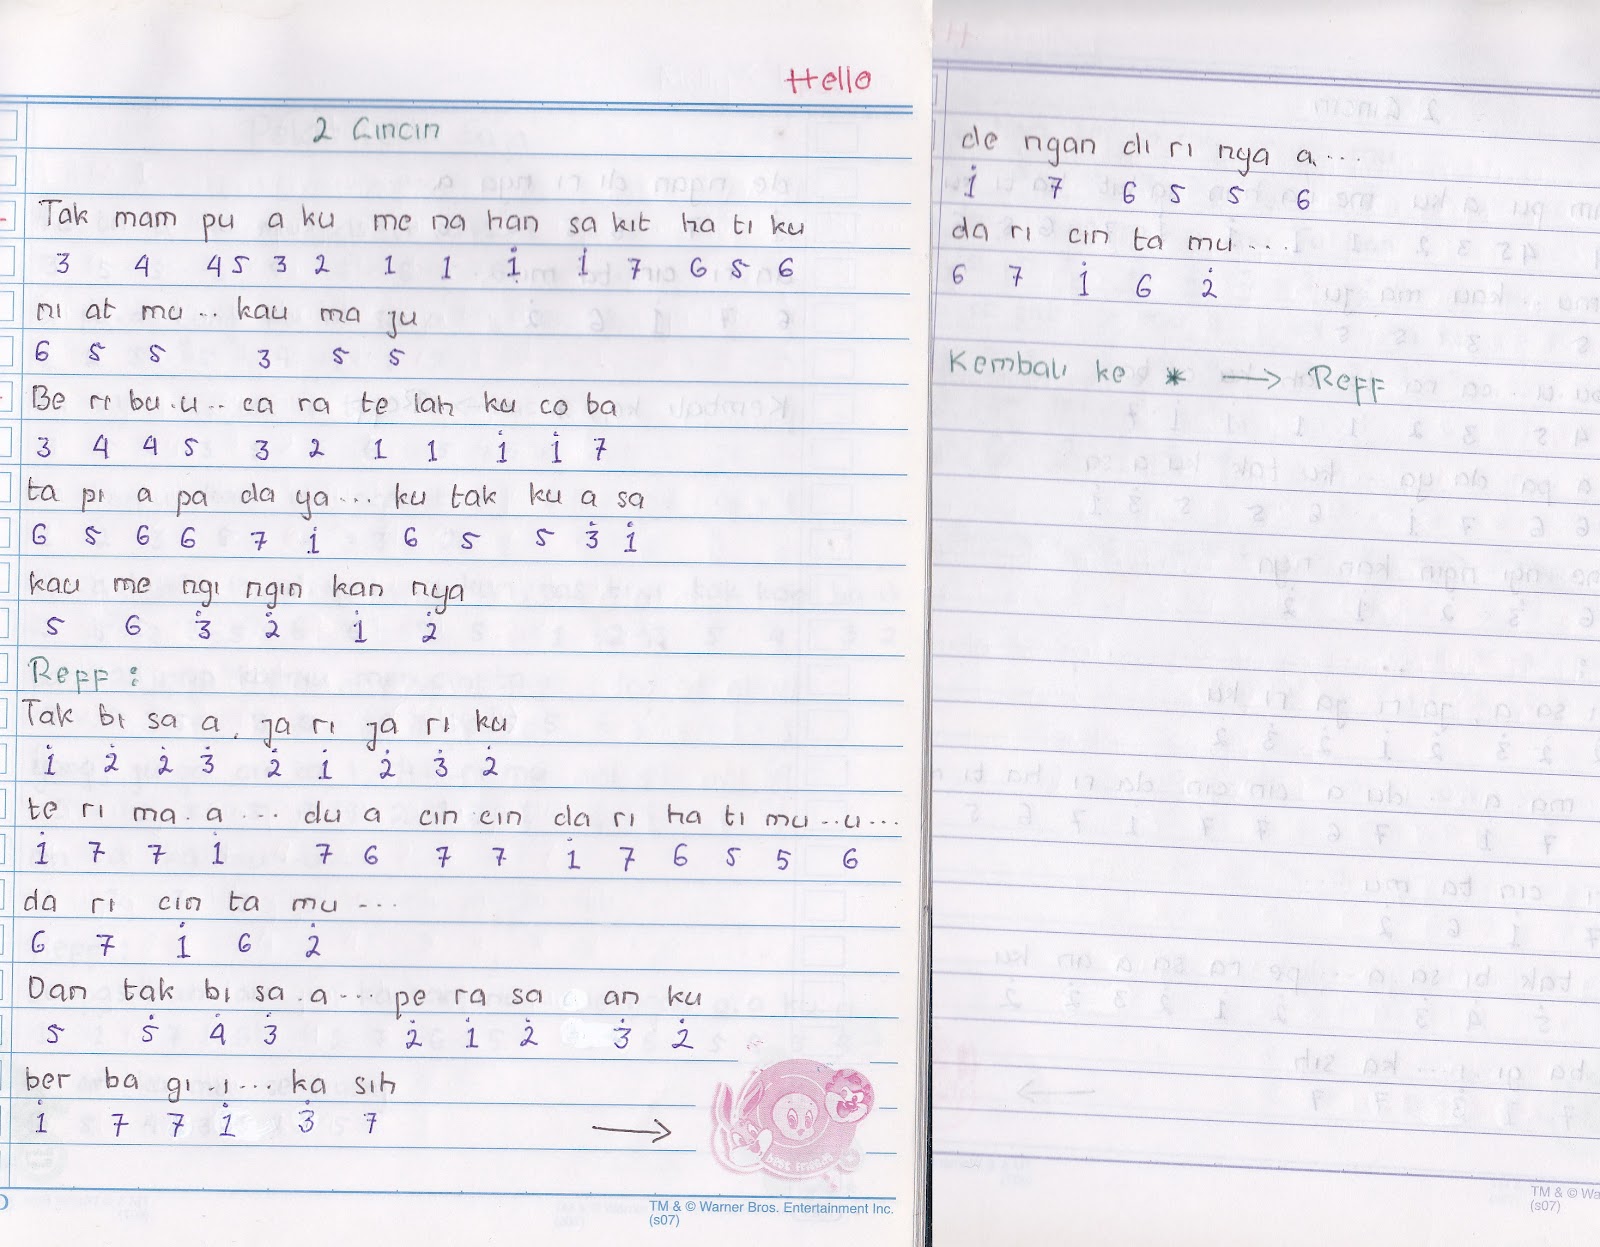 Hello
2 Cincin
Tak mam pu a ku me na han sa kit ha ti ku
3 4 4 5 3 2 1 1 i̇ i̇ 7 6 5 6
ni at mu .. kau ma ju
6 5 5 3 5 5
Be ri bu . u .. ca ra te lah ku co ba
3 4 4 5 3 2 1 1 1̇ 1̇ 7
ta pi a pa da ya ... ku tak ku a sa
6 5 6 6 7 1̇ 6 5 5 3̇ 1̇
kau me ngi ngin kan nya
5 6 3̇ 2̇ 1̇ 2̇
Reff :
Tak bi sa a , ja ri ja ri ku
1̇ 2̇ 2̇ 3̇ 2̇ 1̇ 2̇ 3̇ 2̇
te ri ma . a ... du a cin cin da ri ha ti mu .. u ...
1̇ 7 7 1̇ 7 6 7 7 1̇ 7 6 5 5 6
da ri cin ta mu ...
6 7 1̇ 6 2̇
Dan tak bi sa . a ... pe ra sa an ku
5 5̇ 4̇ 3̇ 2̇ 1̇ 2̇ 3̇ 2̇
ber ba gi . i ... ka sih
1̇ 7 7 1̇ 3̇ 7
→
best friends
TM & © Warner Bros. Entertainment Inc.
(s07)
de ngan di ri nya a ...
1̇ 7 6 5 5 6
da ri cin ta mu ...
6 7 1̇ 6 2̇
Kembali ke * → Reff
TM & © Wa
(s07)